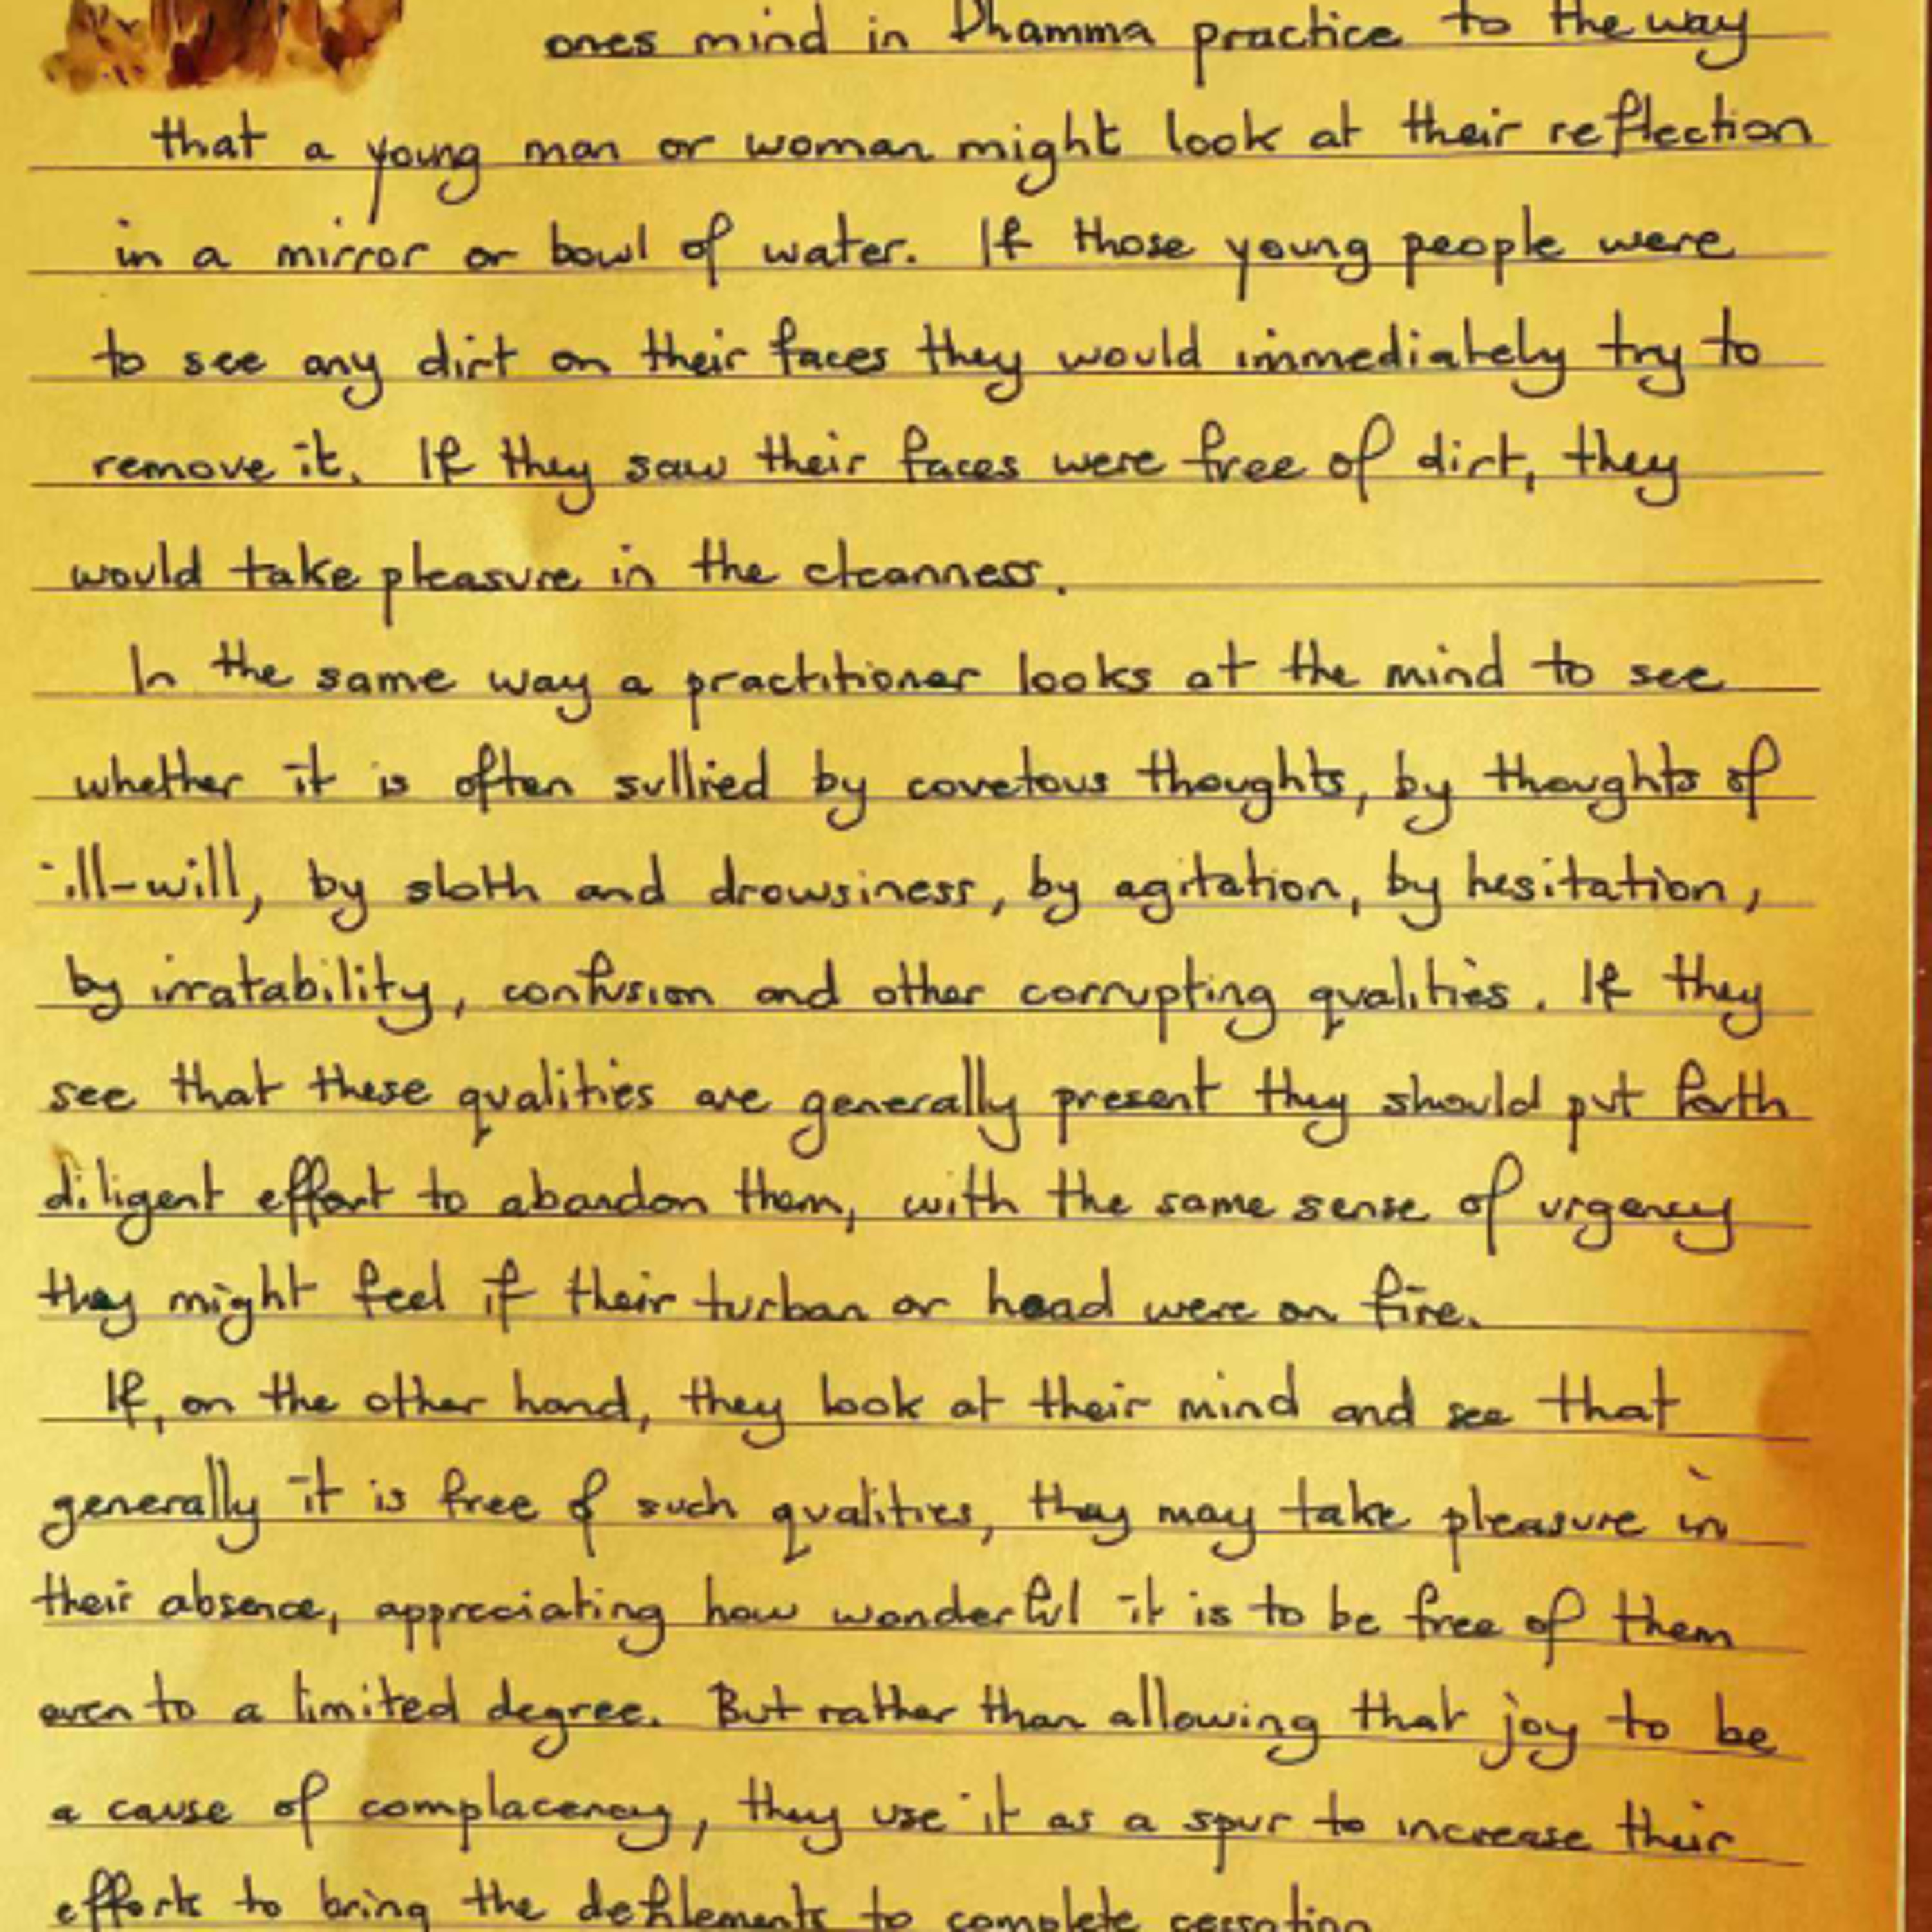 ones mind in Dhamma practice to the way
that a young man or woman might look at their reflection
in a mirror or bowl of water. If those young people were
to see any dirt on their faces they would immediately try to
remove it. If they saw their faces were free of dirt, they
would take pleasure in the cleanness.
In the same way a practitioner looks at the mind to see
whether it is often sullied by covetous thoughts, by thoughts of
ill-will, by sloth and drowsiness, by agitation, by hesitation,
by irratability, confusion and other corrupting qualities. If they
see that these qualities are generally present they should put forth
diligent effort to abandon them, with the same sense of urgency
they might feel if their turban or head were on fire.
If, on the other hand, they look at their mind and see that
generally it is free of such qualities, they may take pleasure in
their absence, appreciating how wonderful it is to be free of them
even to a limited degree. But rather than allowing that joy to be
a cause of complacency, they use it as a spur to increase their
efforts to bring the defilements to complete cessation